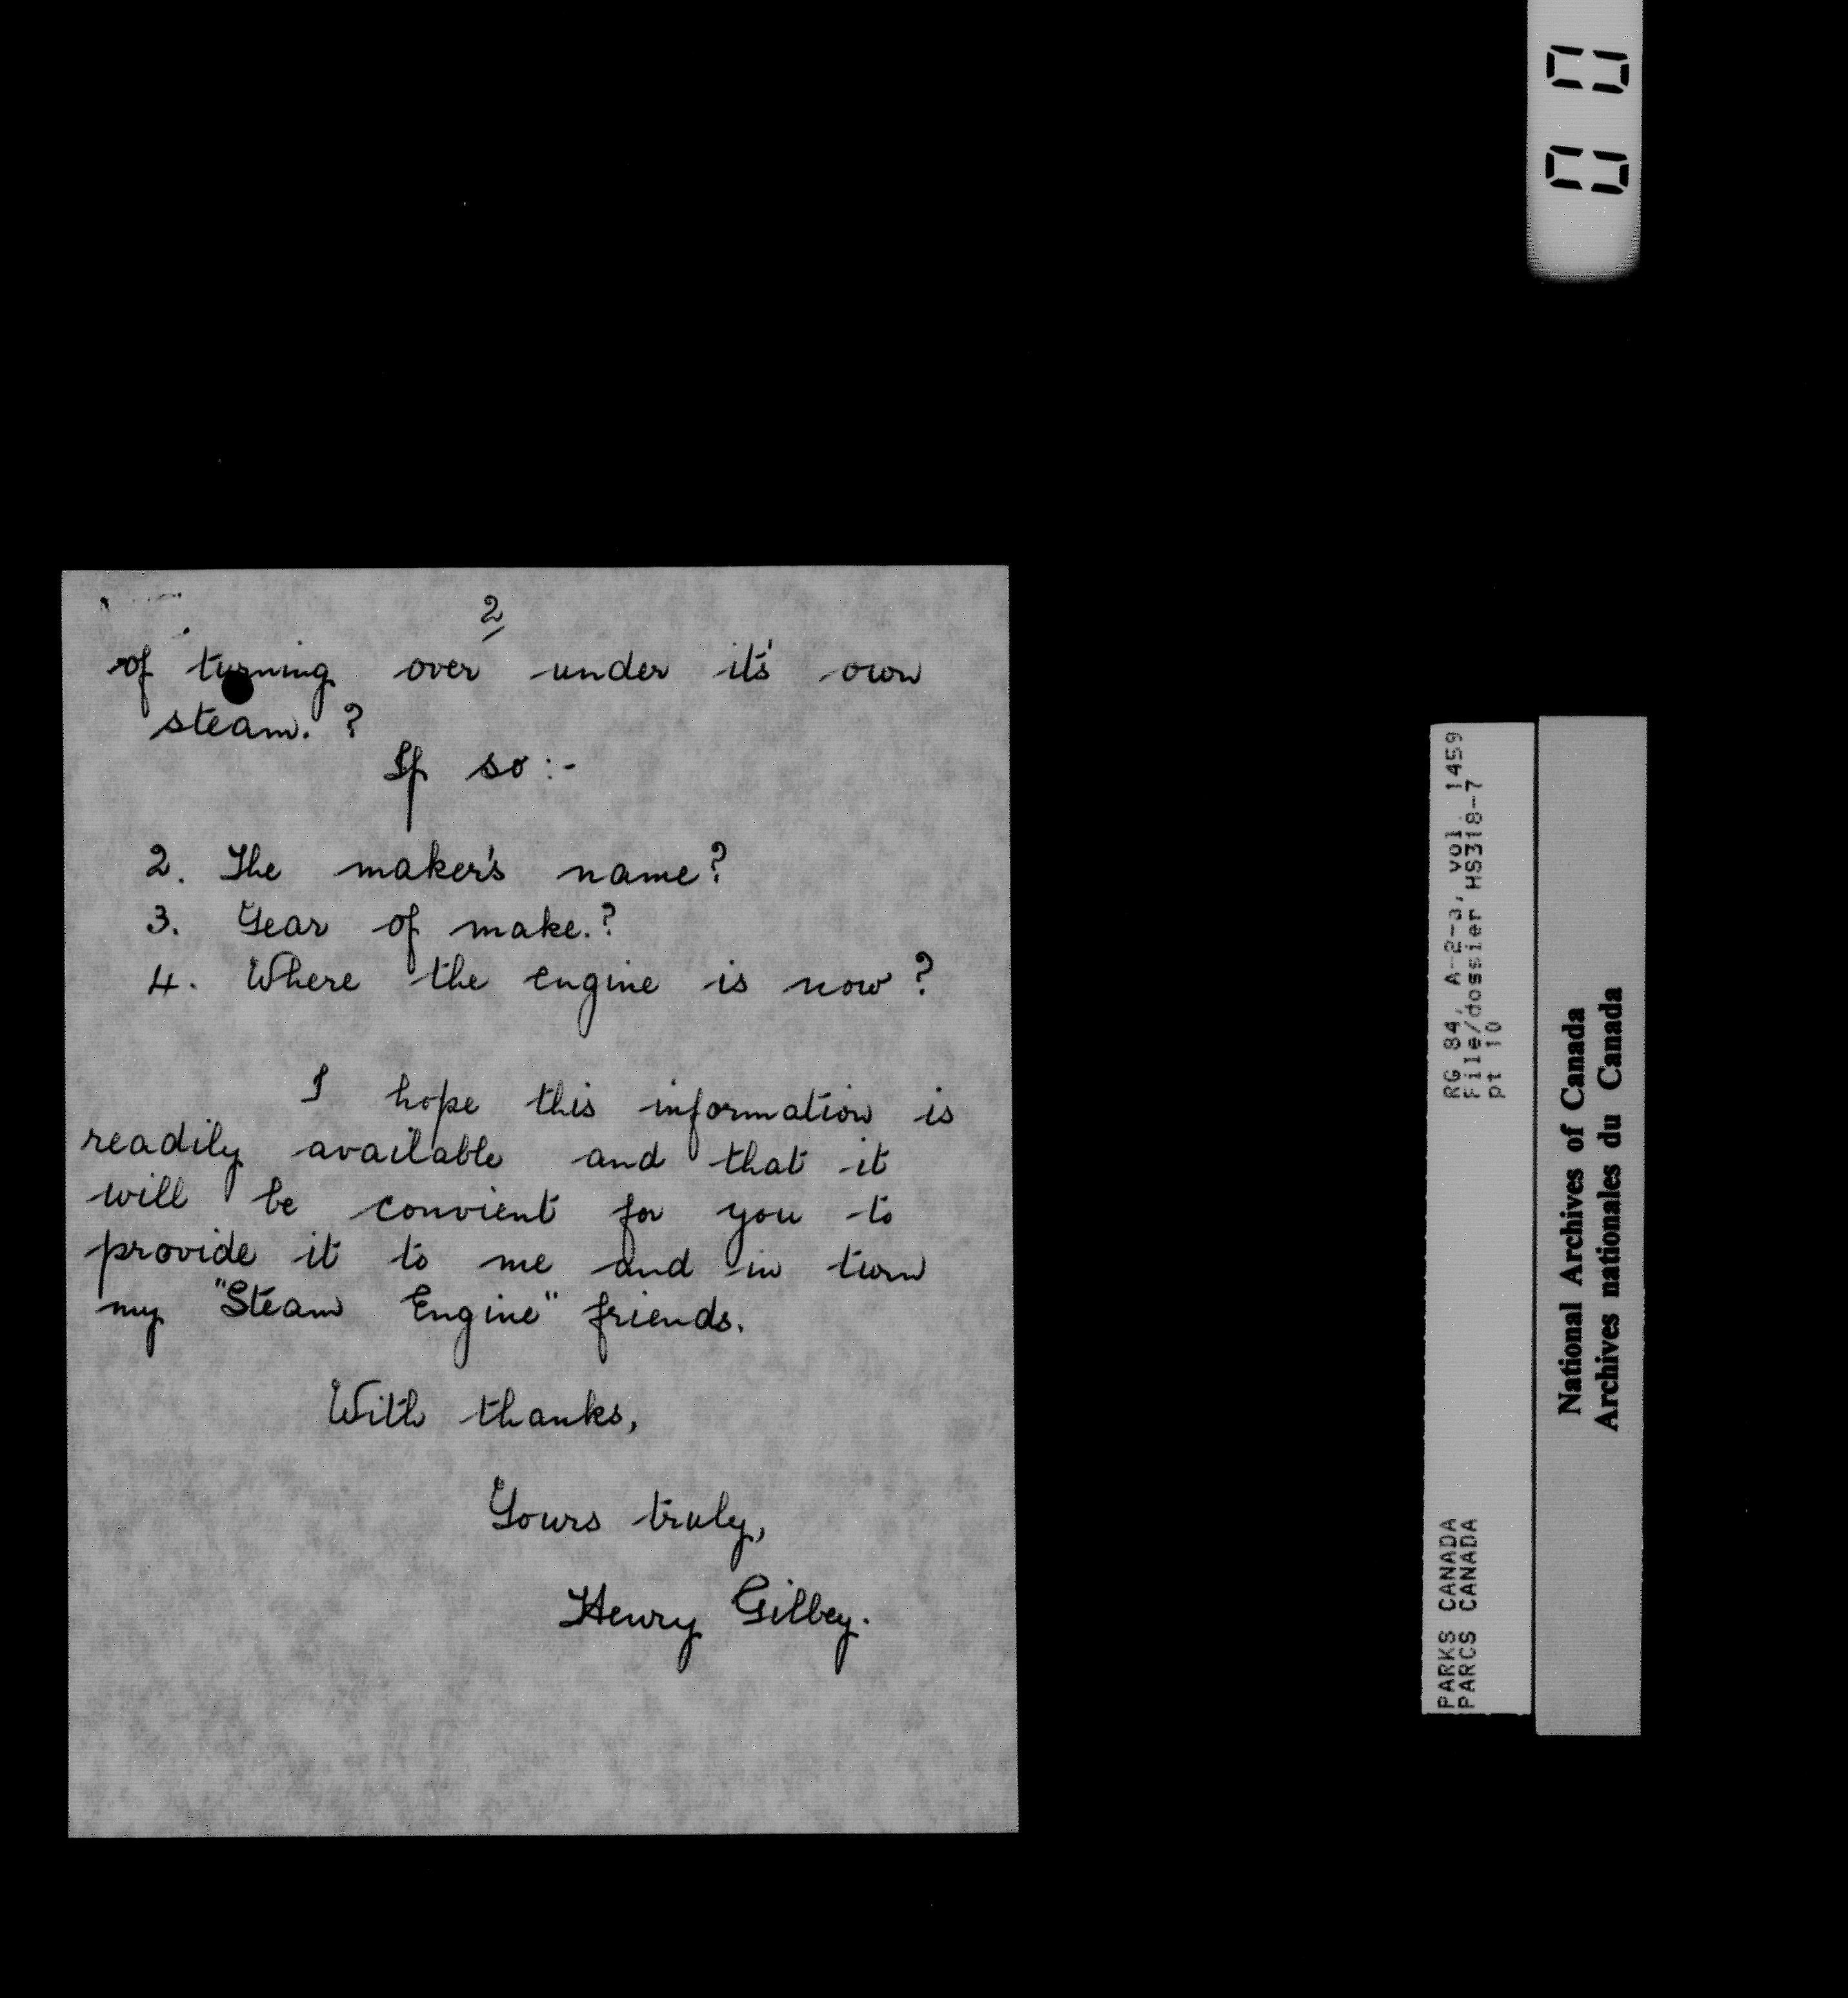 2
of turning over under it's own
steam. ?
If so:-
2. The maker's name?
3. Year of make.?
4. Where the engine is now?
I hope this information is
readily available and that it
will be convient for you to
provide it to me and in turn
my "Steam Engine" friends.
With thanks,
Yours truly,
Henry Gilbey.
00
PARKS CANADA RG 84, A-2-a, vol. 1459
PARCS CANADA File/dossier HS318-7
pt 10
National Archives of Canada
Archives nationales du Canada